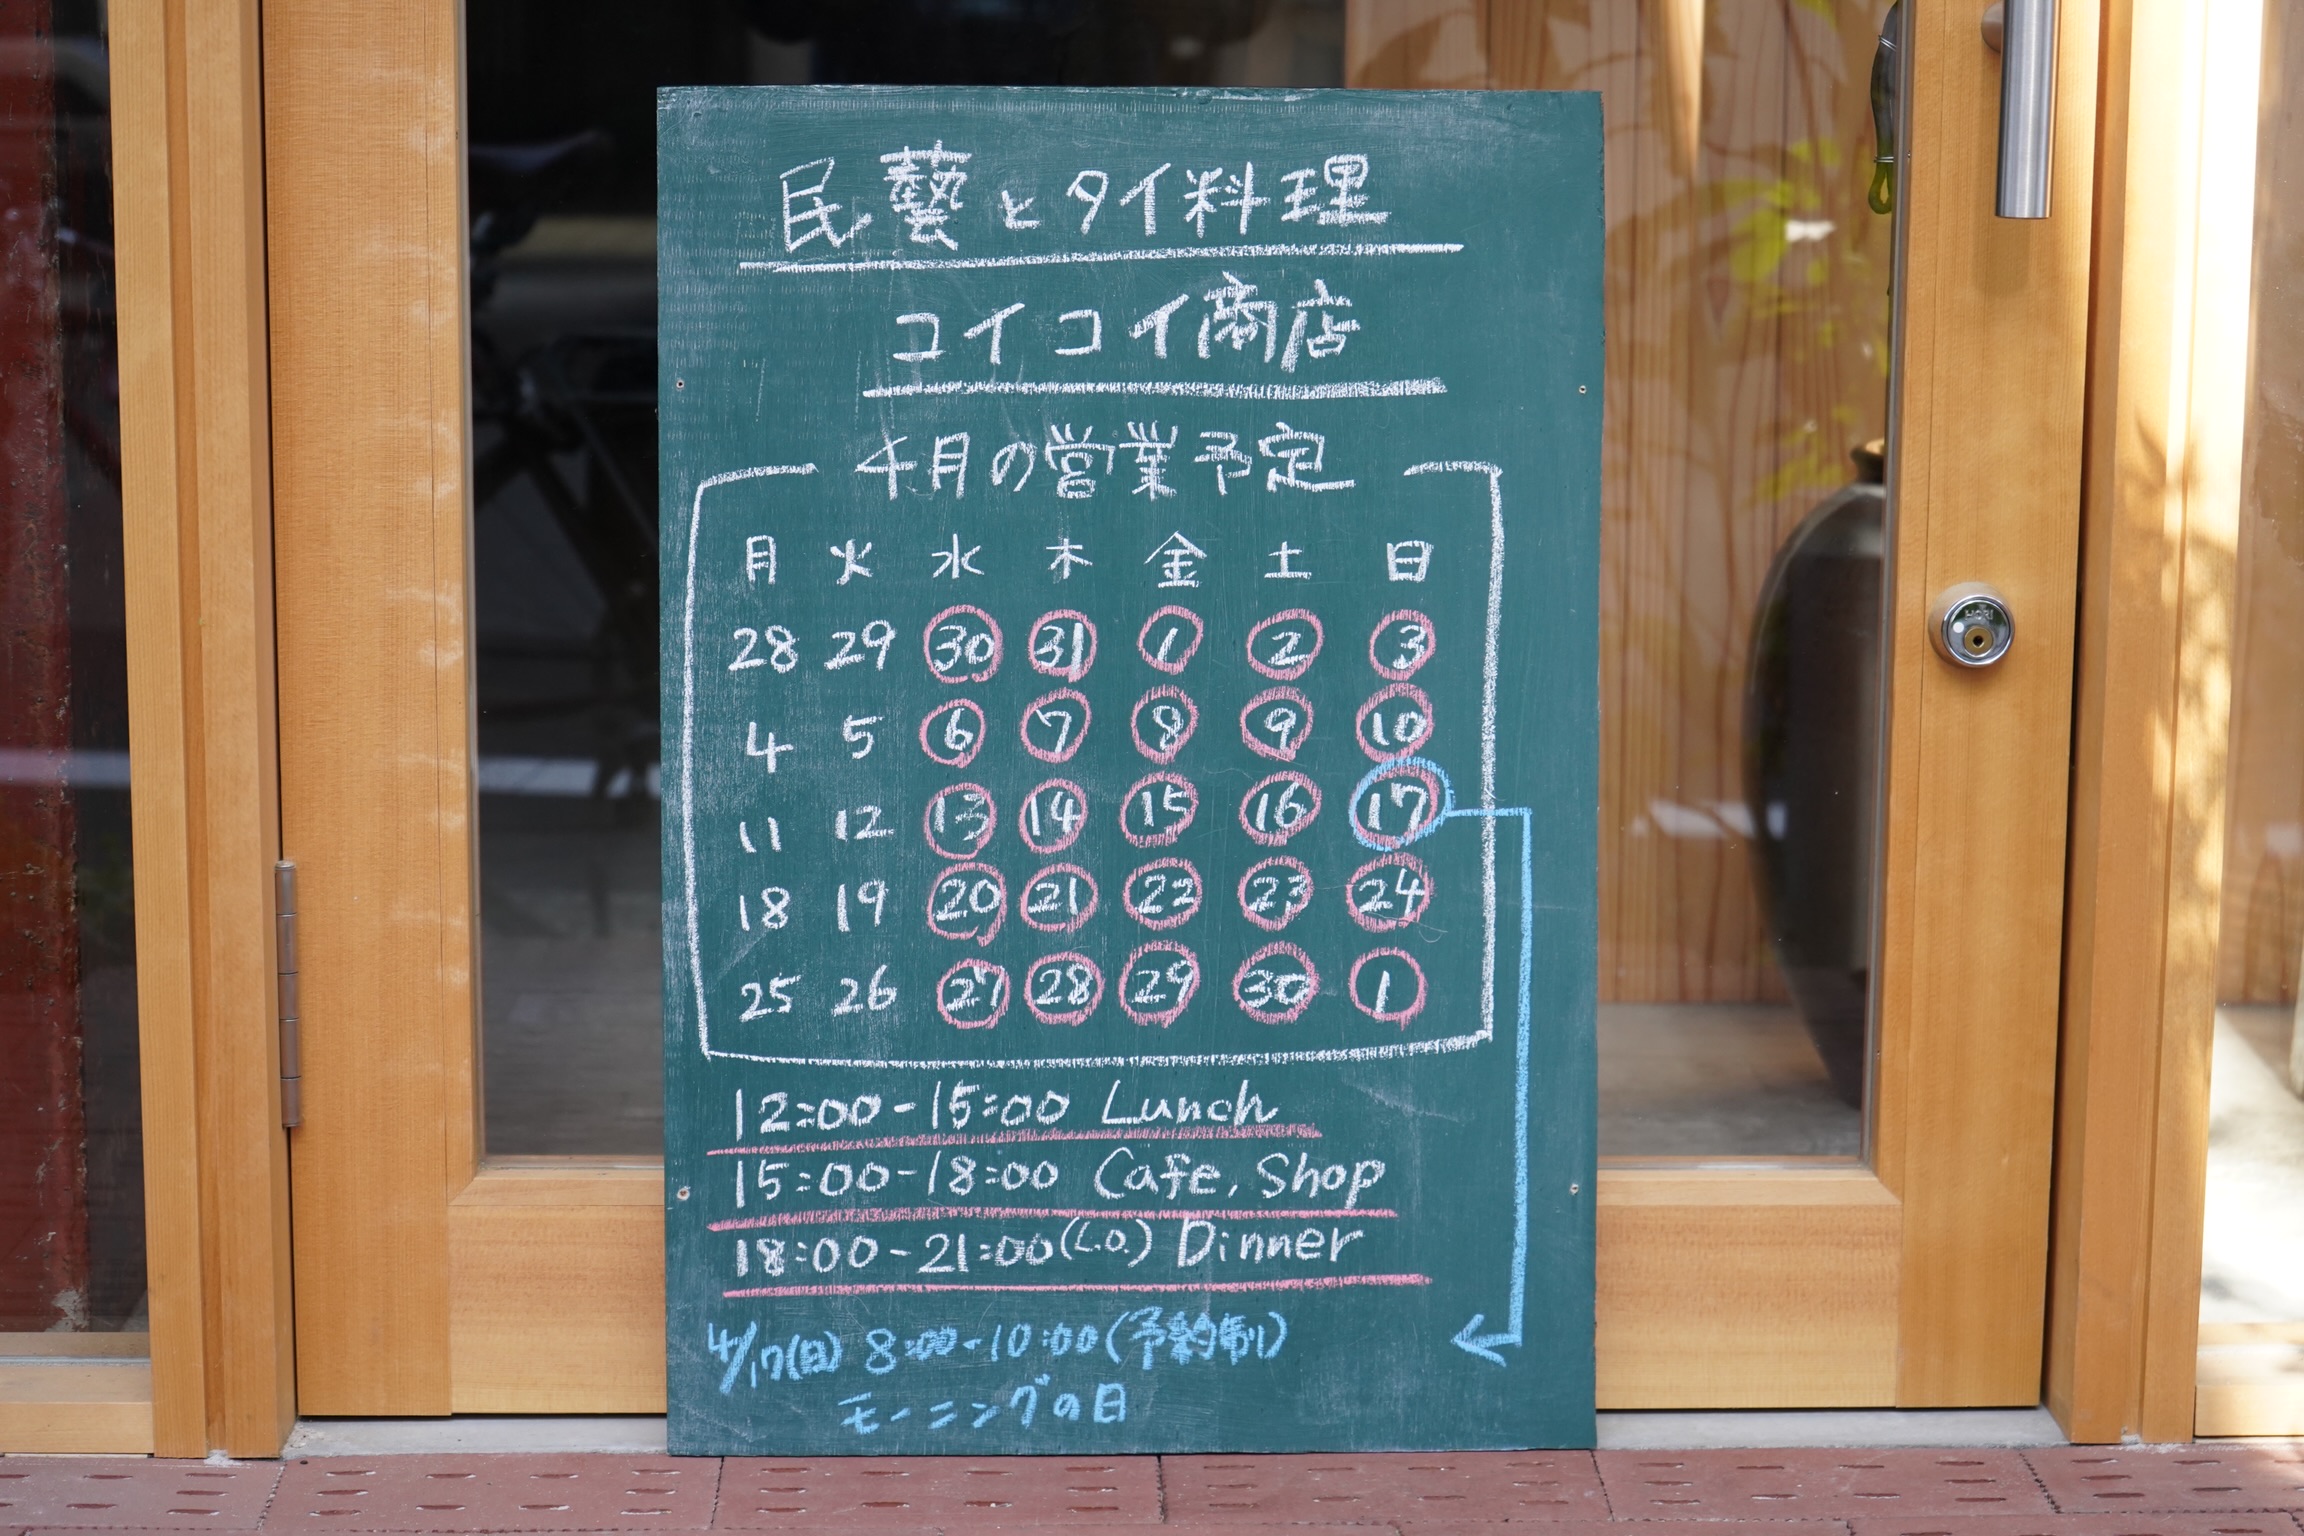 民藝とタイ料理
コイコイ商店
4月の営業予定
月 火 水 木 金 土 日
28 29 30 31 1 2 3
4 5 6 7 8 9 10
11 12 13 14 15 16 17
18 19 20 21 22 23 24
25 26 27 28 29 30 1
12:00-15:00 Lunch
15:00-18:00 Cafe, Shop
18:00-21:00(L.O.) Dinner
4/17(日) 8:00-10:00(予約制)
モーニングの日